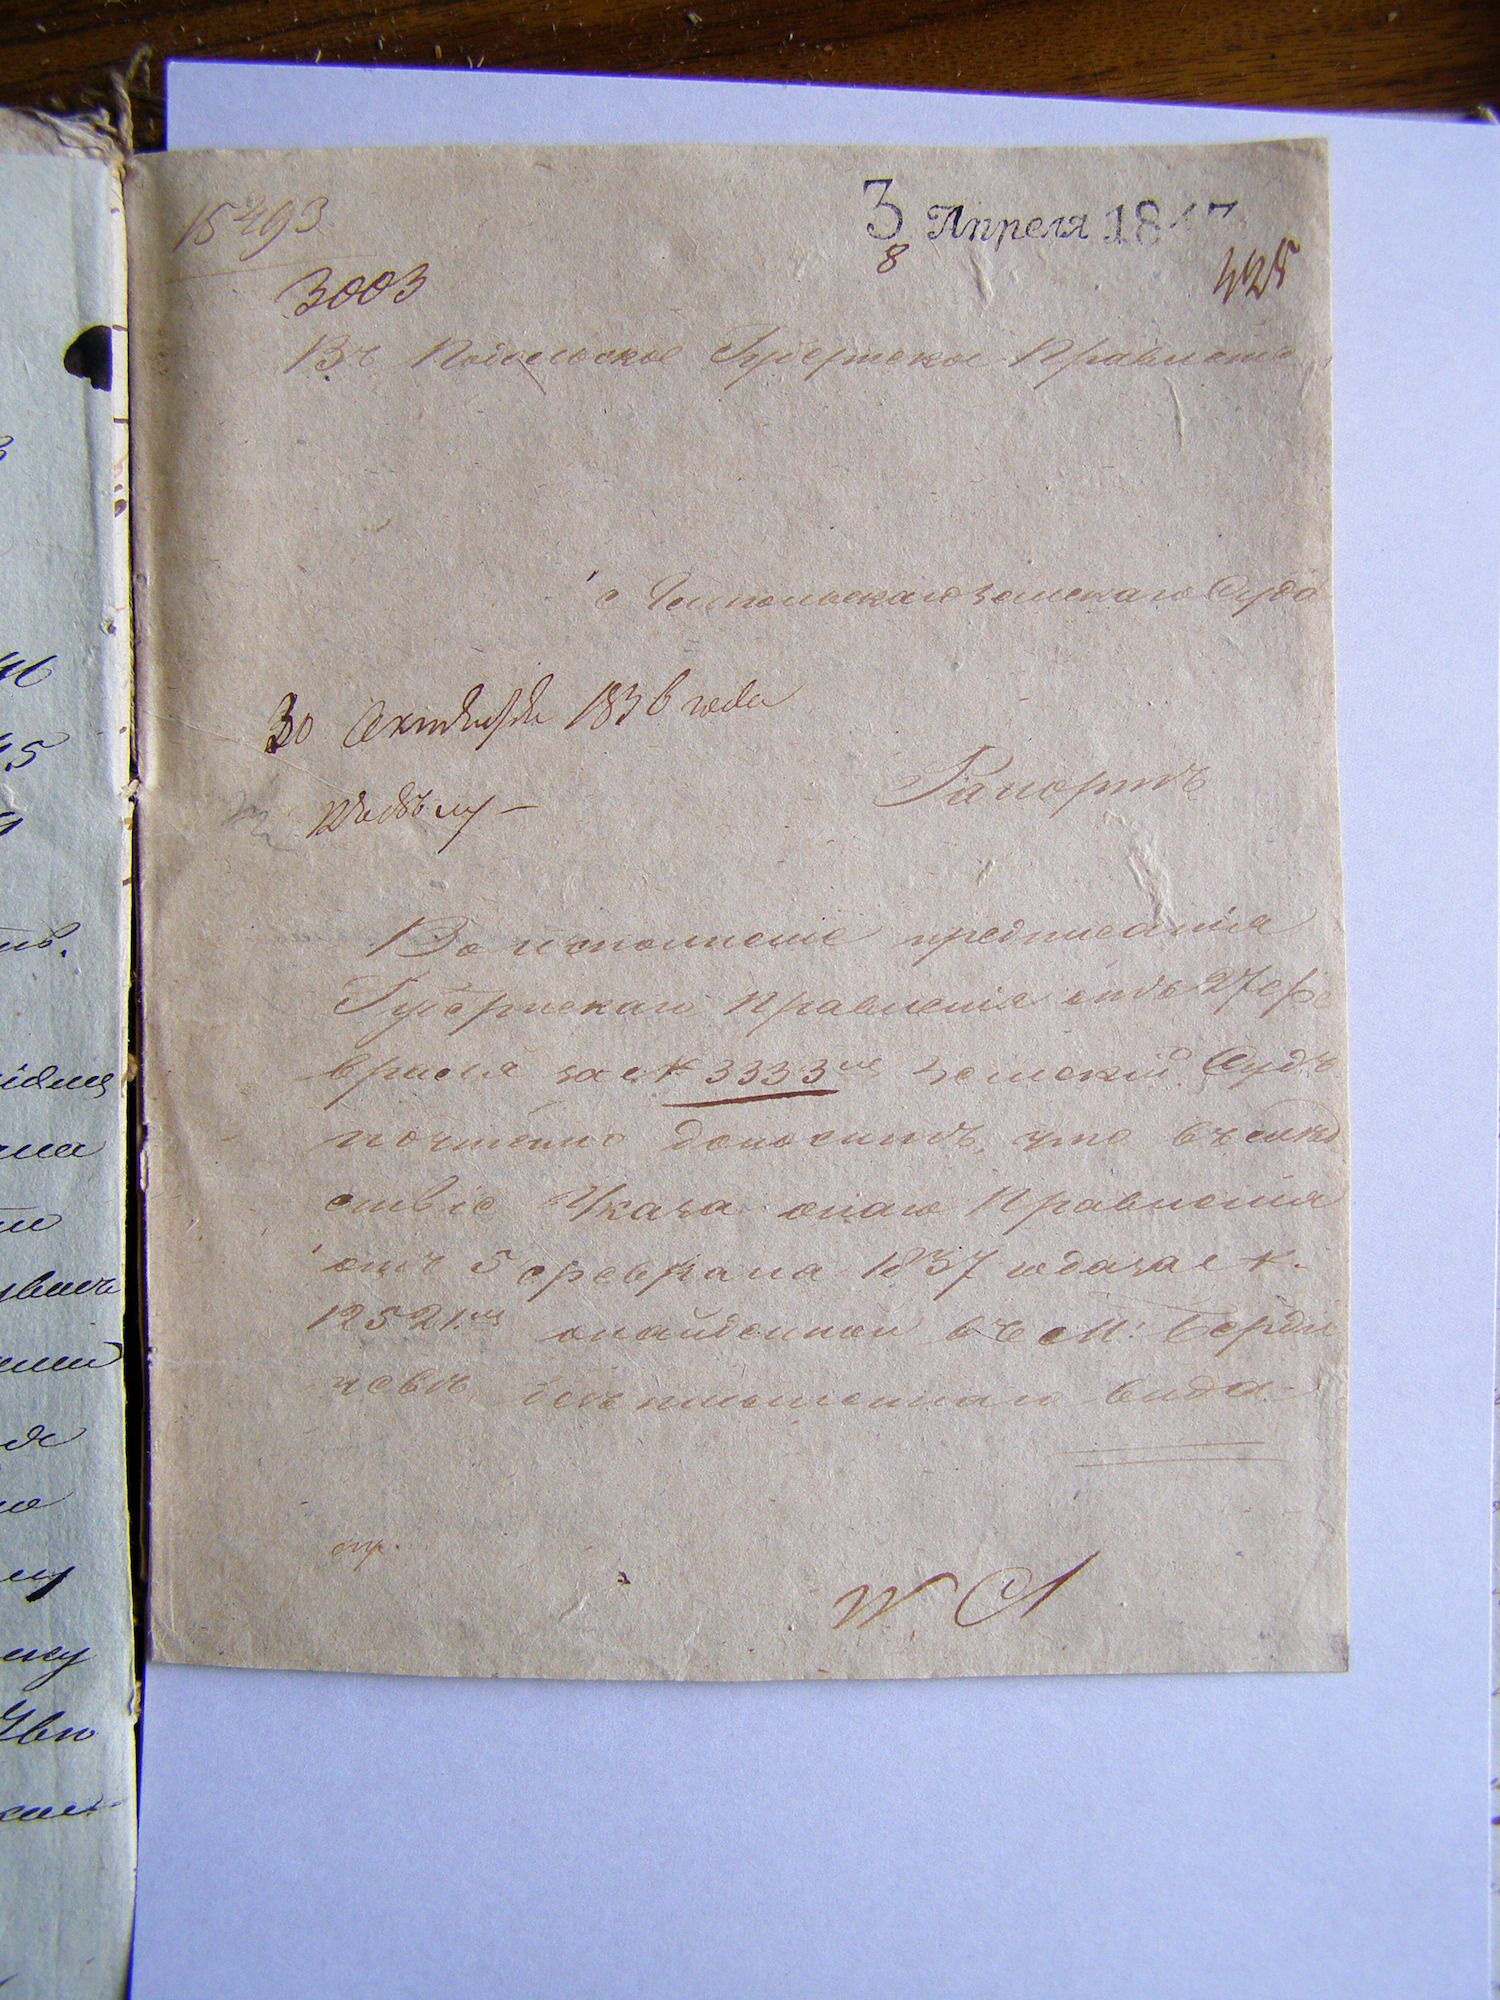 15493
3 Апреля 18 7
8
425
3003
Въ Подольское Губернское Правление
с Ямпольскаго земскаго Суда
30 Октября 1836 года
Рапортъ
Во исполнение предписания
Губернскаго Правления отъ 27 Фе
враля за № 3333 Земский Судъ
почтенно доноситъ, что въ след
ствіе Указа онаго Правления
отъ 5 февраля 1837 года за №
12521 онайденной въ М: Берди
чеве безъ письменнаго вида